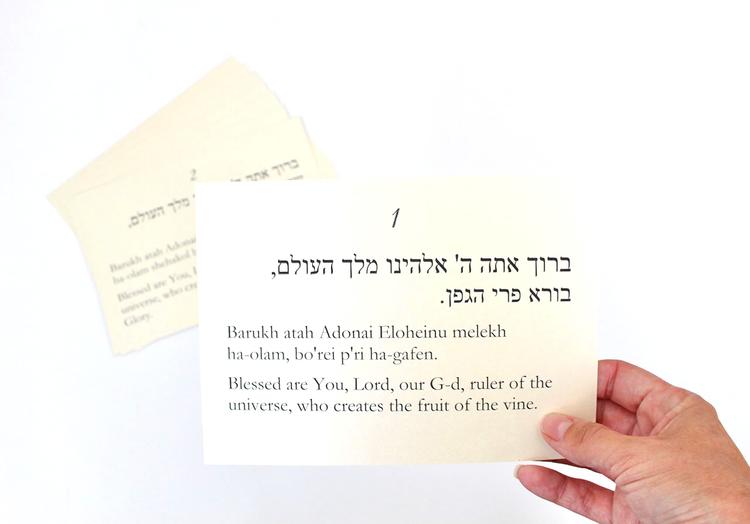 1
ברוך אתה ה' אלהינו מלך העולם,
בורא פרי הגפן.
Barukh atah Adonai Eloheinu melekh
ha-olam, bo'rei p'ri ha-gafen.
Blessed are You, Lord, our G-d, ruler of the
universe, who creates the fruit of the vine.
2
ברוך אתה ה'
מלך העולם,
Barukh atah Adona
ha-olam shehakol
Blessed are You, L
universe, who cre
Glory.